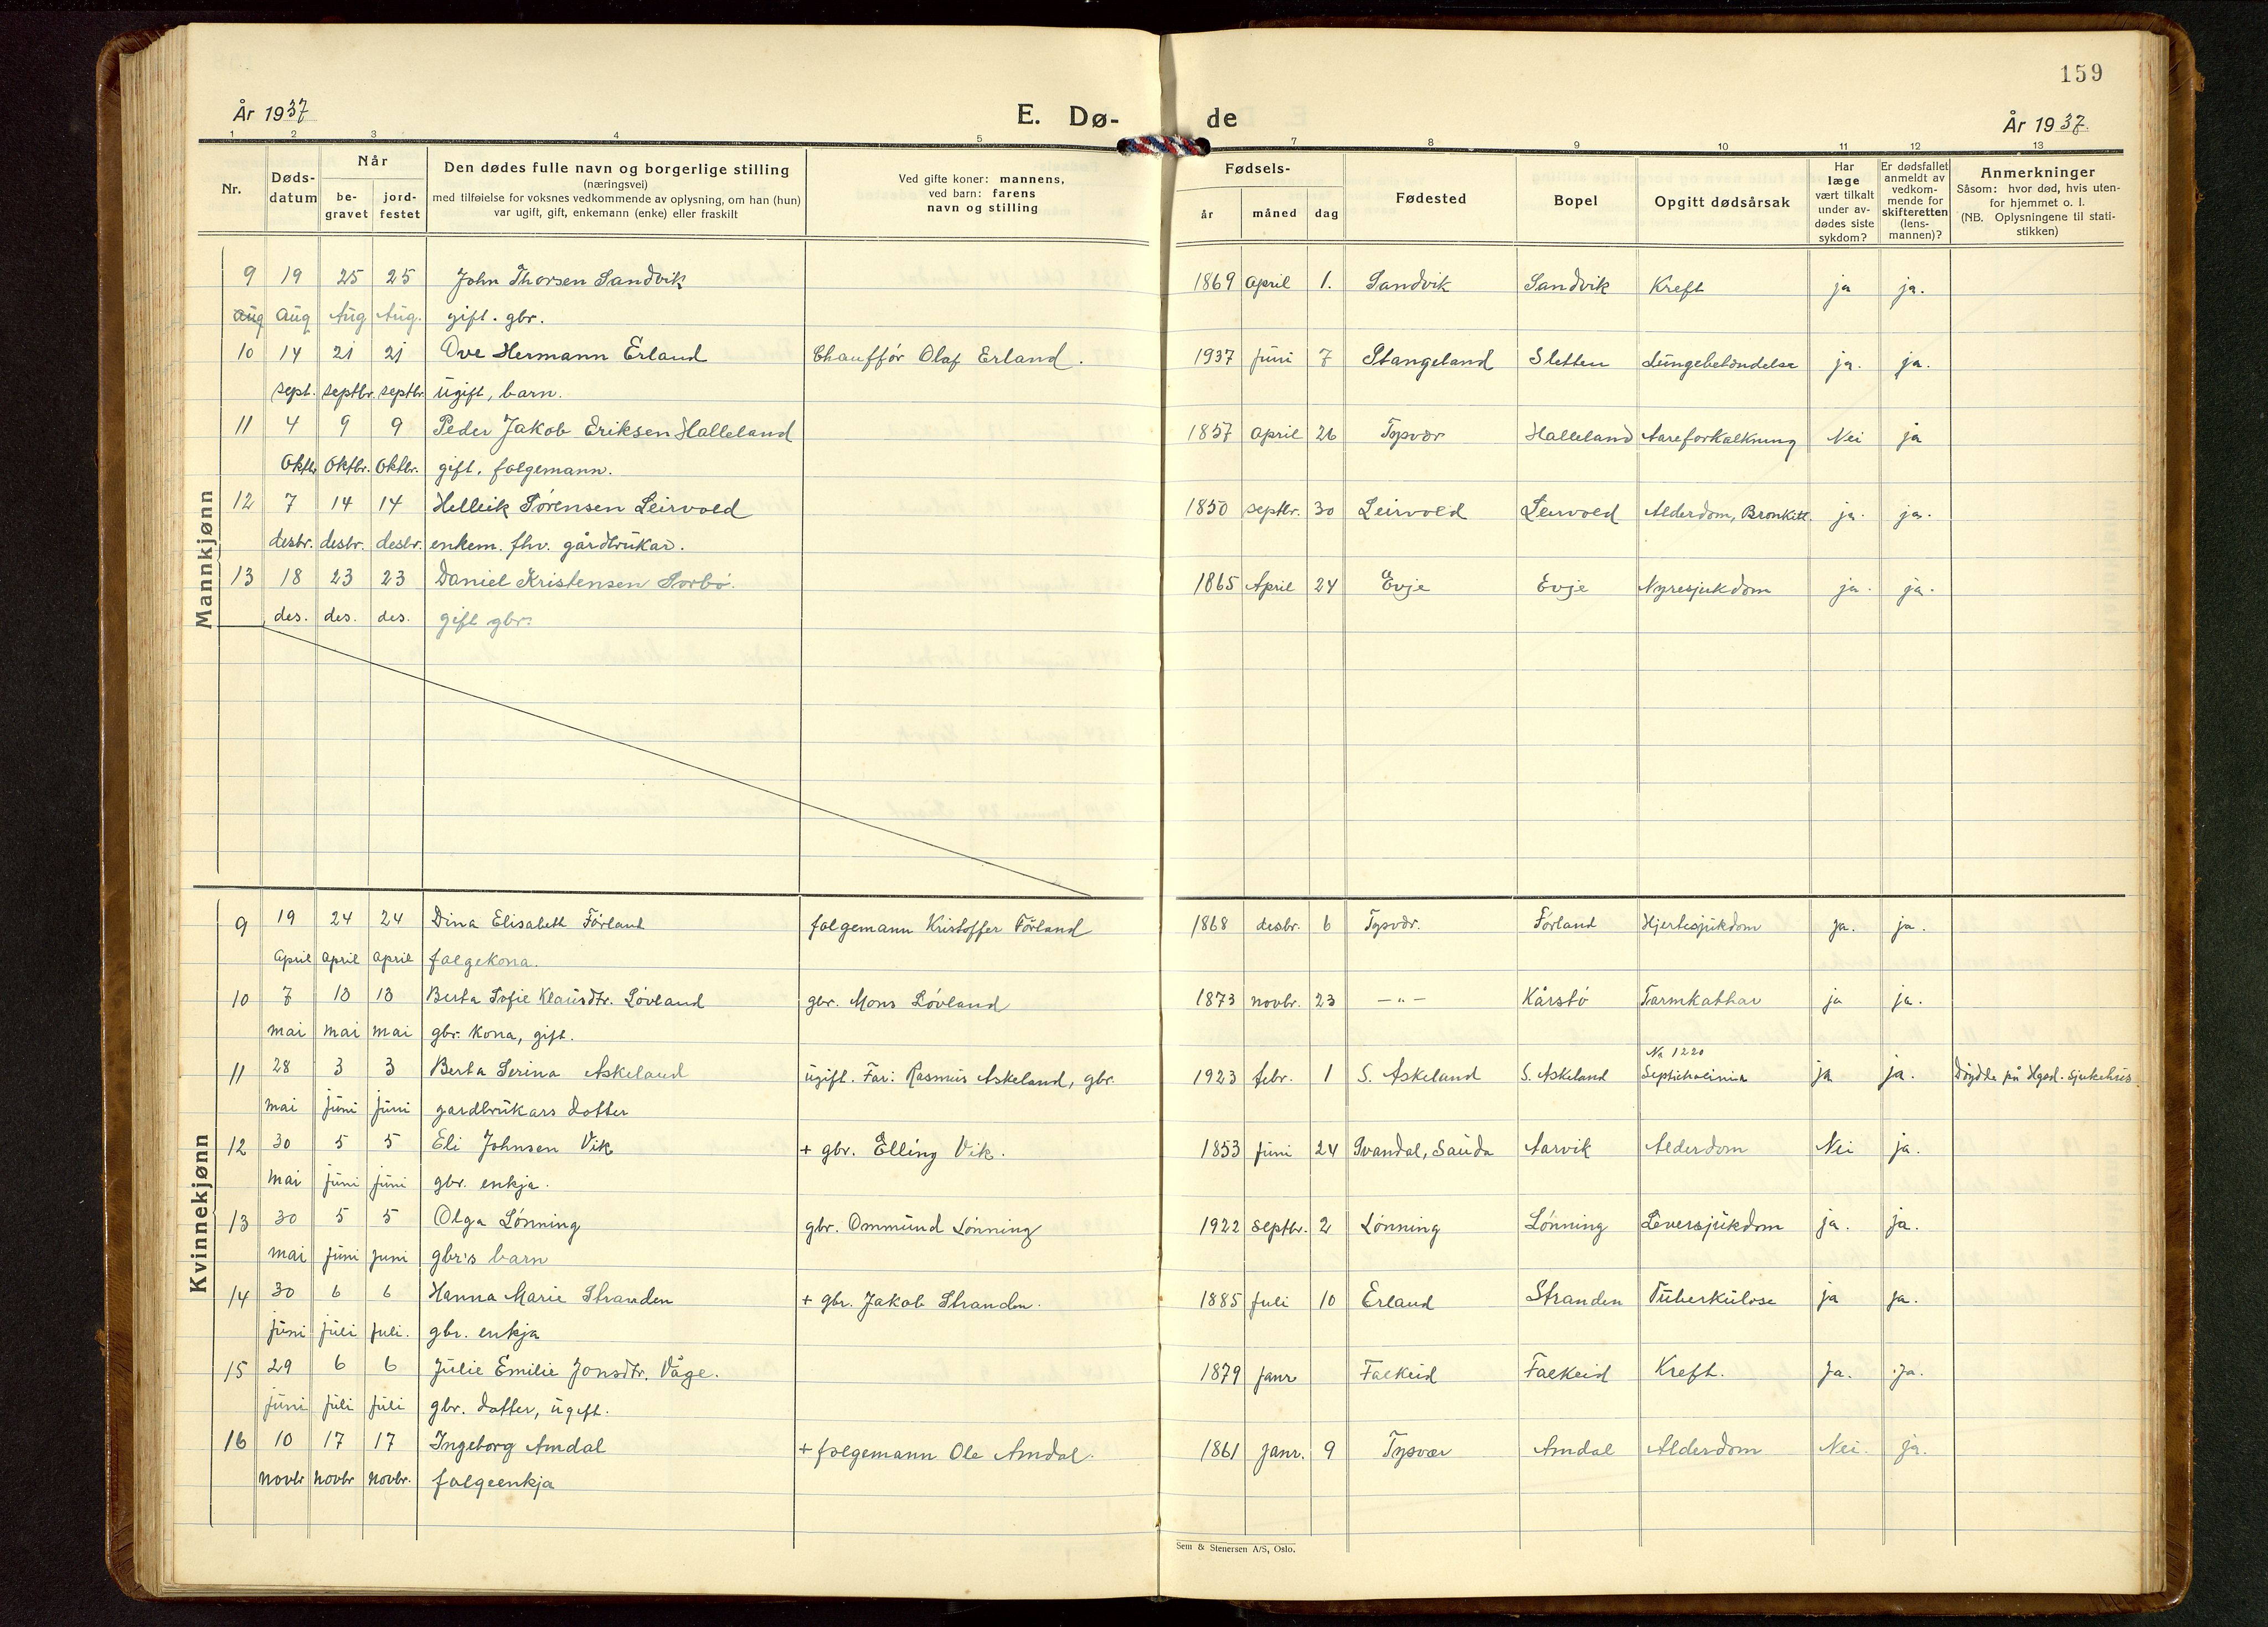 159
År 1937
E. Dø-
de
År 1937.
1 2 3 4 5 7 8 9 10 11 12 13
Nr.
Døds-
datum
Når
be-
gravet
jord-
festet
Den dødes fulle navn og borgerlige stilling
(næringsvei)
med tilføielse for voksnes vedkommende av oplysning, om han (hun)
var ugift, gift, enkemann (enke) eller fraskilt
Ved gifte koner: mannens,
ved barn: farens
navn og stilling
Fødsels-
år måned dag
Fødested
Bopel
Opgitt dødsårsak
Har
læge
vært tilkalt
under av-
dødes siste
sykdom?
Er dødsfallet
anmeldt av
vedkom-
mende for
skifteretten
(lens-
mannen)?
Anmerkninger
Såsom: hvor død, hvis uten-
for hjemmet o. l.
(NB. Oplysningene til stati-
stikken)
Mannkjønn
9 19 25 25 John Thorsen Sandvik 1869 april 1. Sandvik Sandvik Kreft ja ja.
aug aug Aug Aug. gift. gbr.
10 14 21 21 Ove Hermann Erland Chauffór Olaf Erland. 1937 juni 7 Stangeland Sletten Lungebetendelse ja. ja.
sept. septbr. septbr. ugift, barn.
11 4 9 9 Peder Jakob Eriksen Halleland 1857 april 26 Tysvær Halleland Aareforkalkning Nei ja
Oktbr. Oktbr. Oktbr. gift, folgemann.
12 7 14 14 Helleik Sørensen Leirvold 1850 septbr. 30 Leirvold Leirvold Alderdom, Bronkitt. ja. ja.
desbr. desbr. desbr. enkem. fhv. gårdbrukar.
13 18 23 23 Daniel Kristensen Sorbø. 1865 April 24 Evje Evje Nyresjukdom ja. ja.
des. des. des. gift gbr.
Kvinnekjønn
9 19 24 24 Dina Elisabeth Førland folgemann Kristoffer Førland 1868 desbr. 6 Tysvær. Førland Hjertesjukdom ja. ja.
April April April folgekona.
10 7 13 13 Berta Sofie Klausdtr. Løvland gbr. Mons Løvland 1873 novbr. 23 — " — Kårstø Tarmkathar ja ja.
mai mai mai gbr. kona, gift.
No 1220
11 28 3 3 Berta Serina Askeland ugift. Far: Rasmus Askeland, gbr. 1923 febr. 1 S. Askeland S. Askeland ja ja. Døydde på Hgsd. sjukehus.
mai juni juni gardbrukars dotter
12 30 5 5 Eli Johnsen Vik + gbr. Elling Vik. 1853 juni 24 Svandal, Sauda Aarvik Alderdom Nei ja.
mai juni juni gbr. enkja.
13 30 5 5 Olga Lønning gbr. Ommund Lønning 1922 septbr. 2 Lønning Lønning Leversjukdom ja. ja.
mai juni juni gbr's barn
14 30 6 6 Hanna Marie Stranden + gbr. Jakob Stranden. 1885 juli 10 Erland Stranden Tuberkulose ja ja.
juni juli juli. gbr. enkja
15 29 6 6 Julie Emilie Jonsdtr. Våge. 1879 janr Falkeid Falkeid Kreft. Ja. ja.
juni juli juli gbr. dotter, ugift.
16 10 17 17 Ingeborg Amdal + folgemann Ole Amdal. 1861 janr. 9 Tysvær Amdal Alderdom Nei. ja.
novbr novbr novbr. folgeenkja
Sem & Stenersen A/S, Oslo.